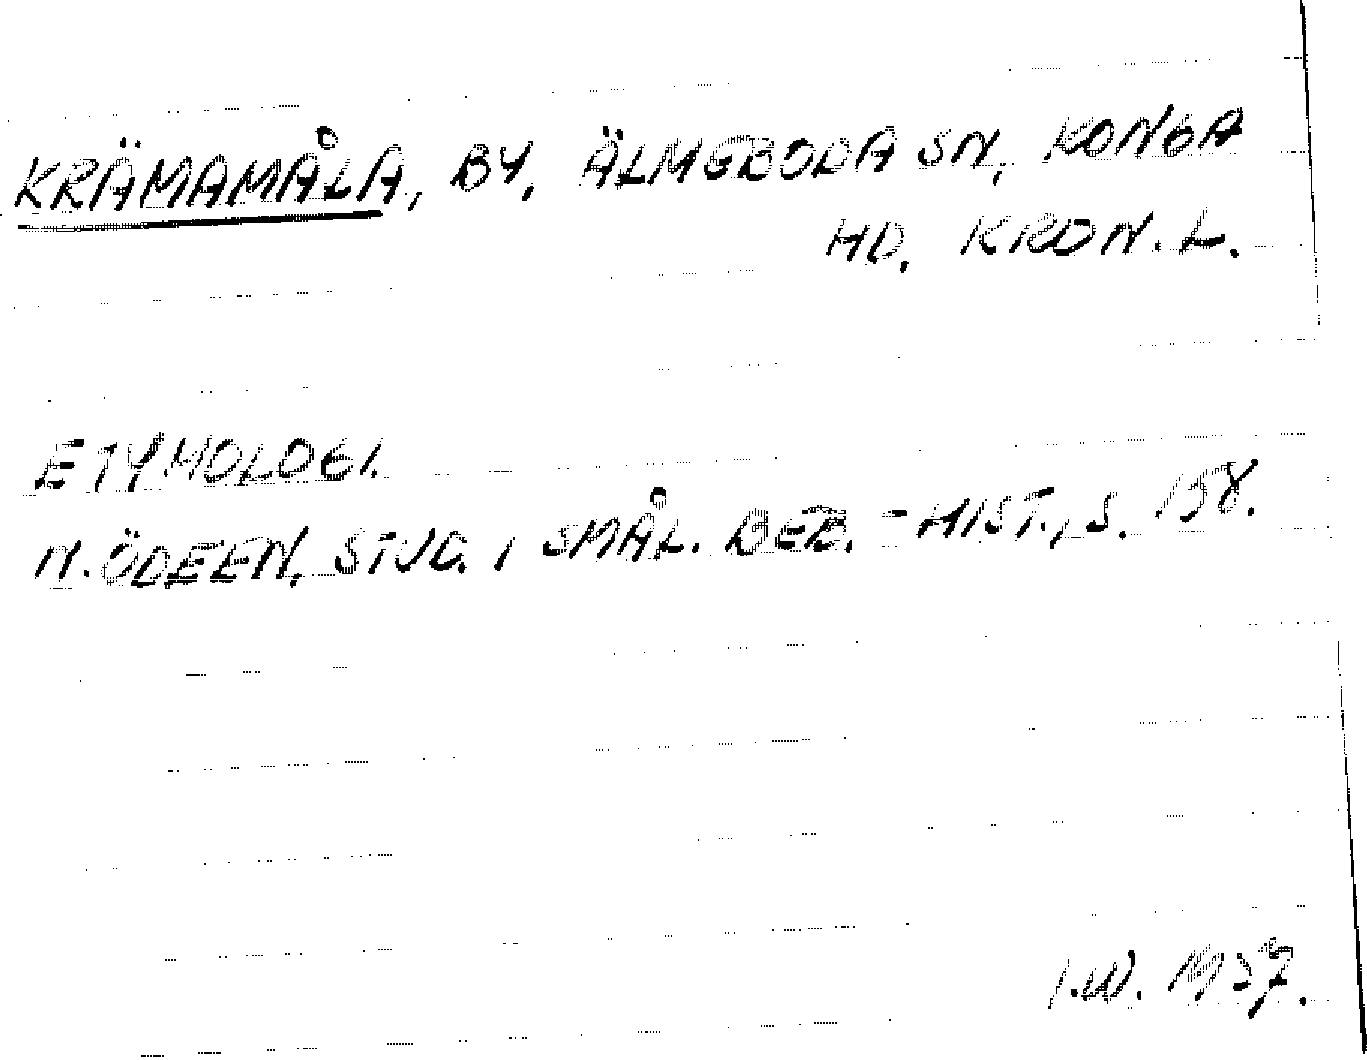 KRÄMAMÅLA, BY, ÄLMEBODA SN, KONGA
HD, KRON. L.
ETYMOLOGI.
N. ÖDEEN, STUD. I SMÅL. BEB.-HIST., S. 158.
I.W. 1937.